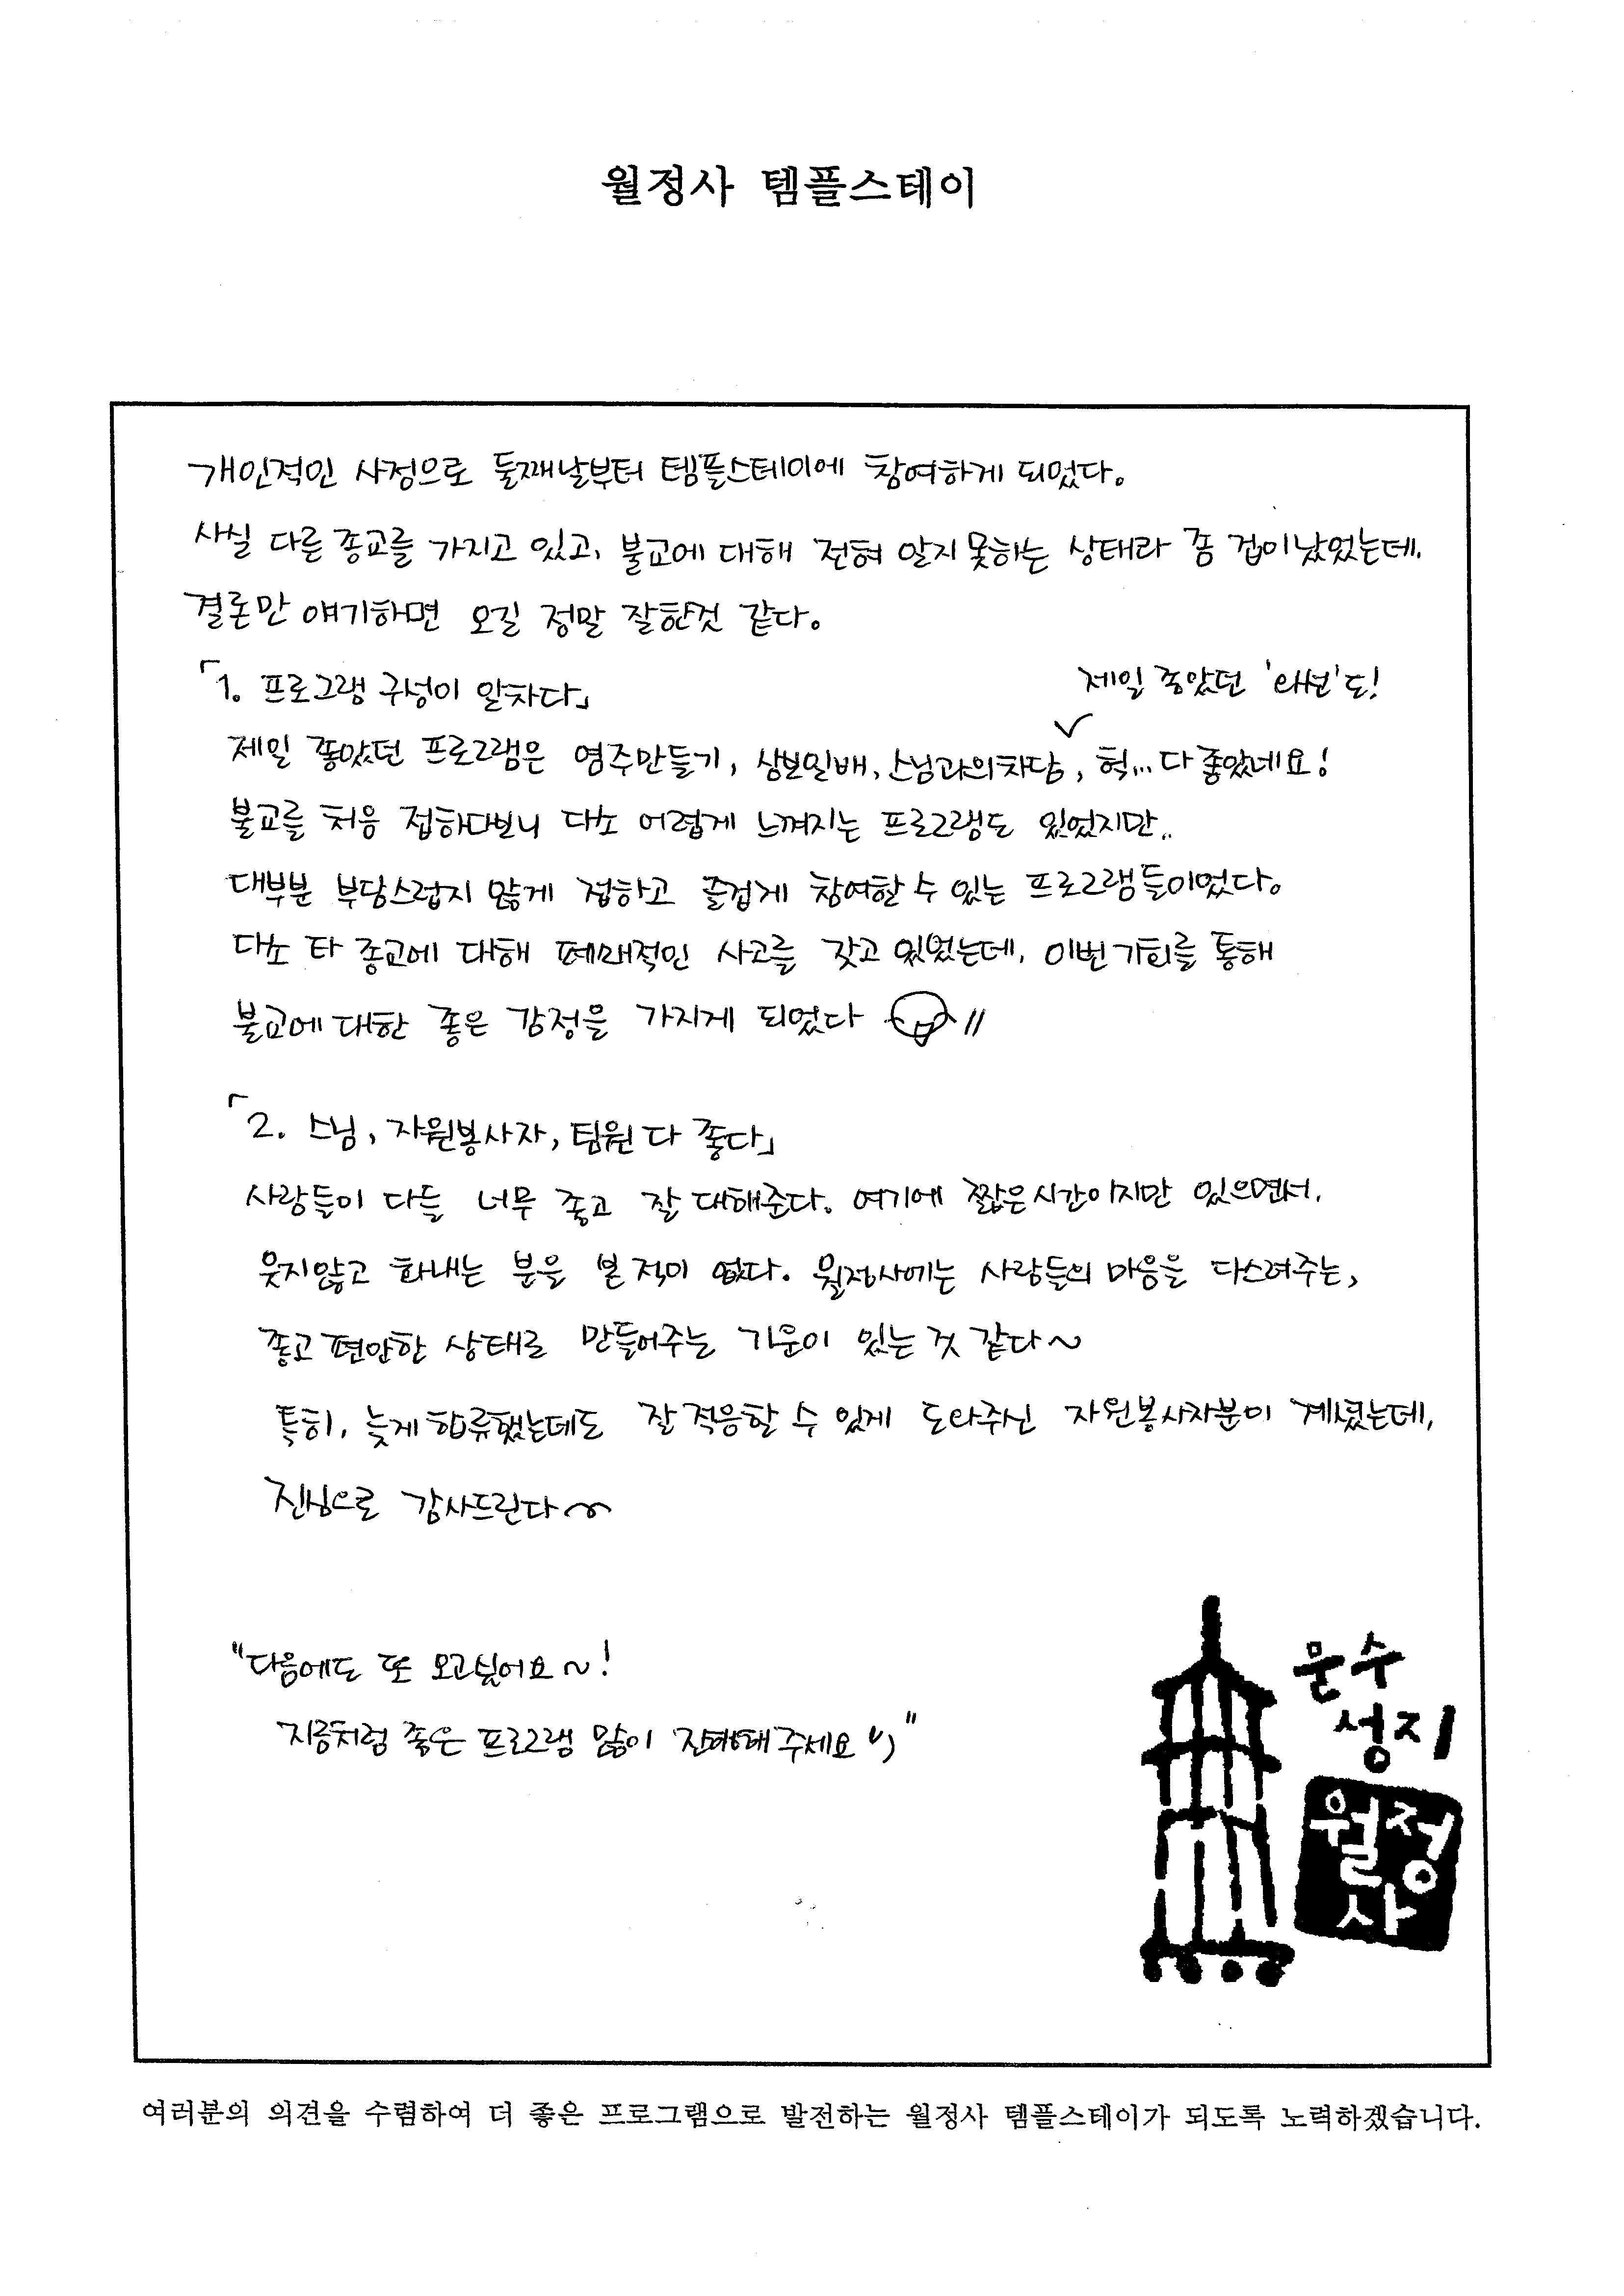 월정사 템플스테이
개인적인 사정으로 둘째날부터 템플스테이에 참여하게 되었다.
사실 다른 종교를 가지고 있고, 불교에 대해 전혀 알지 못하는 상태라 좀 겁이 났었는데,
결론만 얘기하면 오길 정말 잘한것 같다.
「1. 프로그램 구성이 알차다」
제일 좋았던 도!
제일 좋았던 프로그램은 염주만들기, 삼보일배, 스님과의차담, 헉... 다 좋았네요!
불교를 처음 접하다보니 다소 어렵게 느껴지는 프로그램도 있었지만..
대부분 부담스럽지 않게 접하고 즐겁게 참여할 수 있는 프로그램들이었다.
다소 타 종교에 대해 폐쇄적인 사고를 갖고 있었는데, 이번 기회를 통해
불교에 대한 좋은 감정을 가지게 되었다
「2. 스님, 자원봉사자, 팀원 다 좋다」
사람들이 다들 너무 좋고 잘 대해준다. 여기에 짧은 시간이지만 있으면서,
웃지않고 화내는 분을 본 적이 없다. 월정사에는 사람들의 마음을 다스려주는,
좋고 편안한 상태로 만들어주는 기운이 있는 것 같다~
특히, 늦게 합류했는데도 잘 적응할 수 있게 도와주신 자원봉사자분이 계셨는데,
진심으로 감사드린다~
"다음에도 또 오고싶어요~!
지금처럼 좋은 프로그램 많이 진행해주세요 :)"
문수
성지
월정
사
여러분의 의견을 수렴하여 더 좋은 프로그램으로 발전하는 월정사 템플스테이가 되도록 노력하겠습니다.